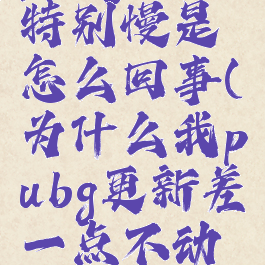 特别慢是
怎么回事(
为什么我p
ubg更新差
一点不动